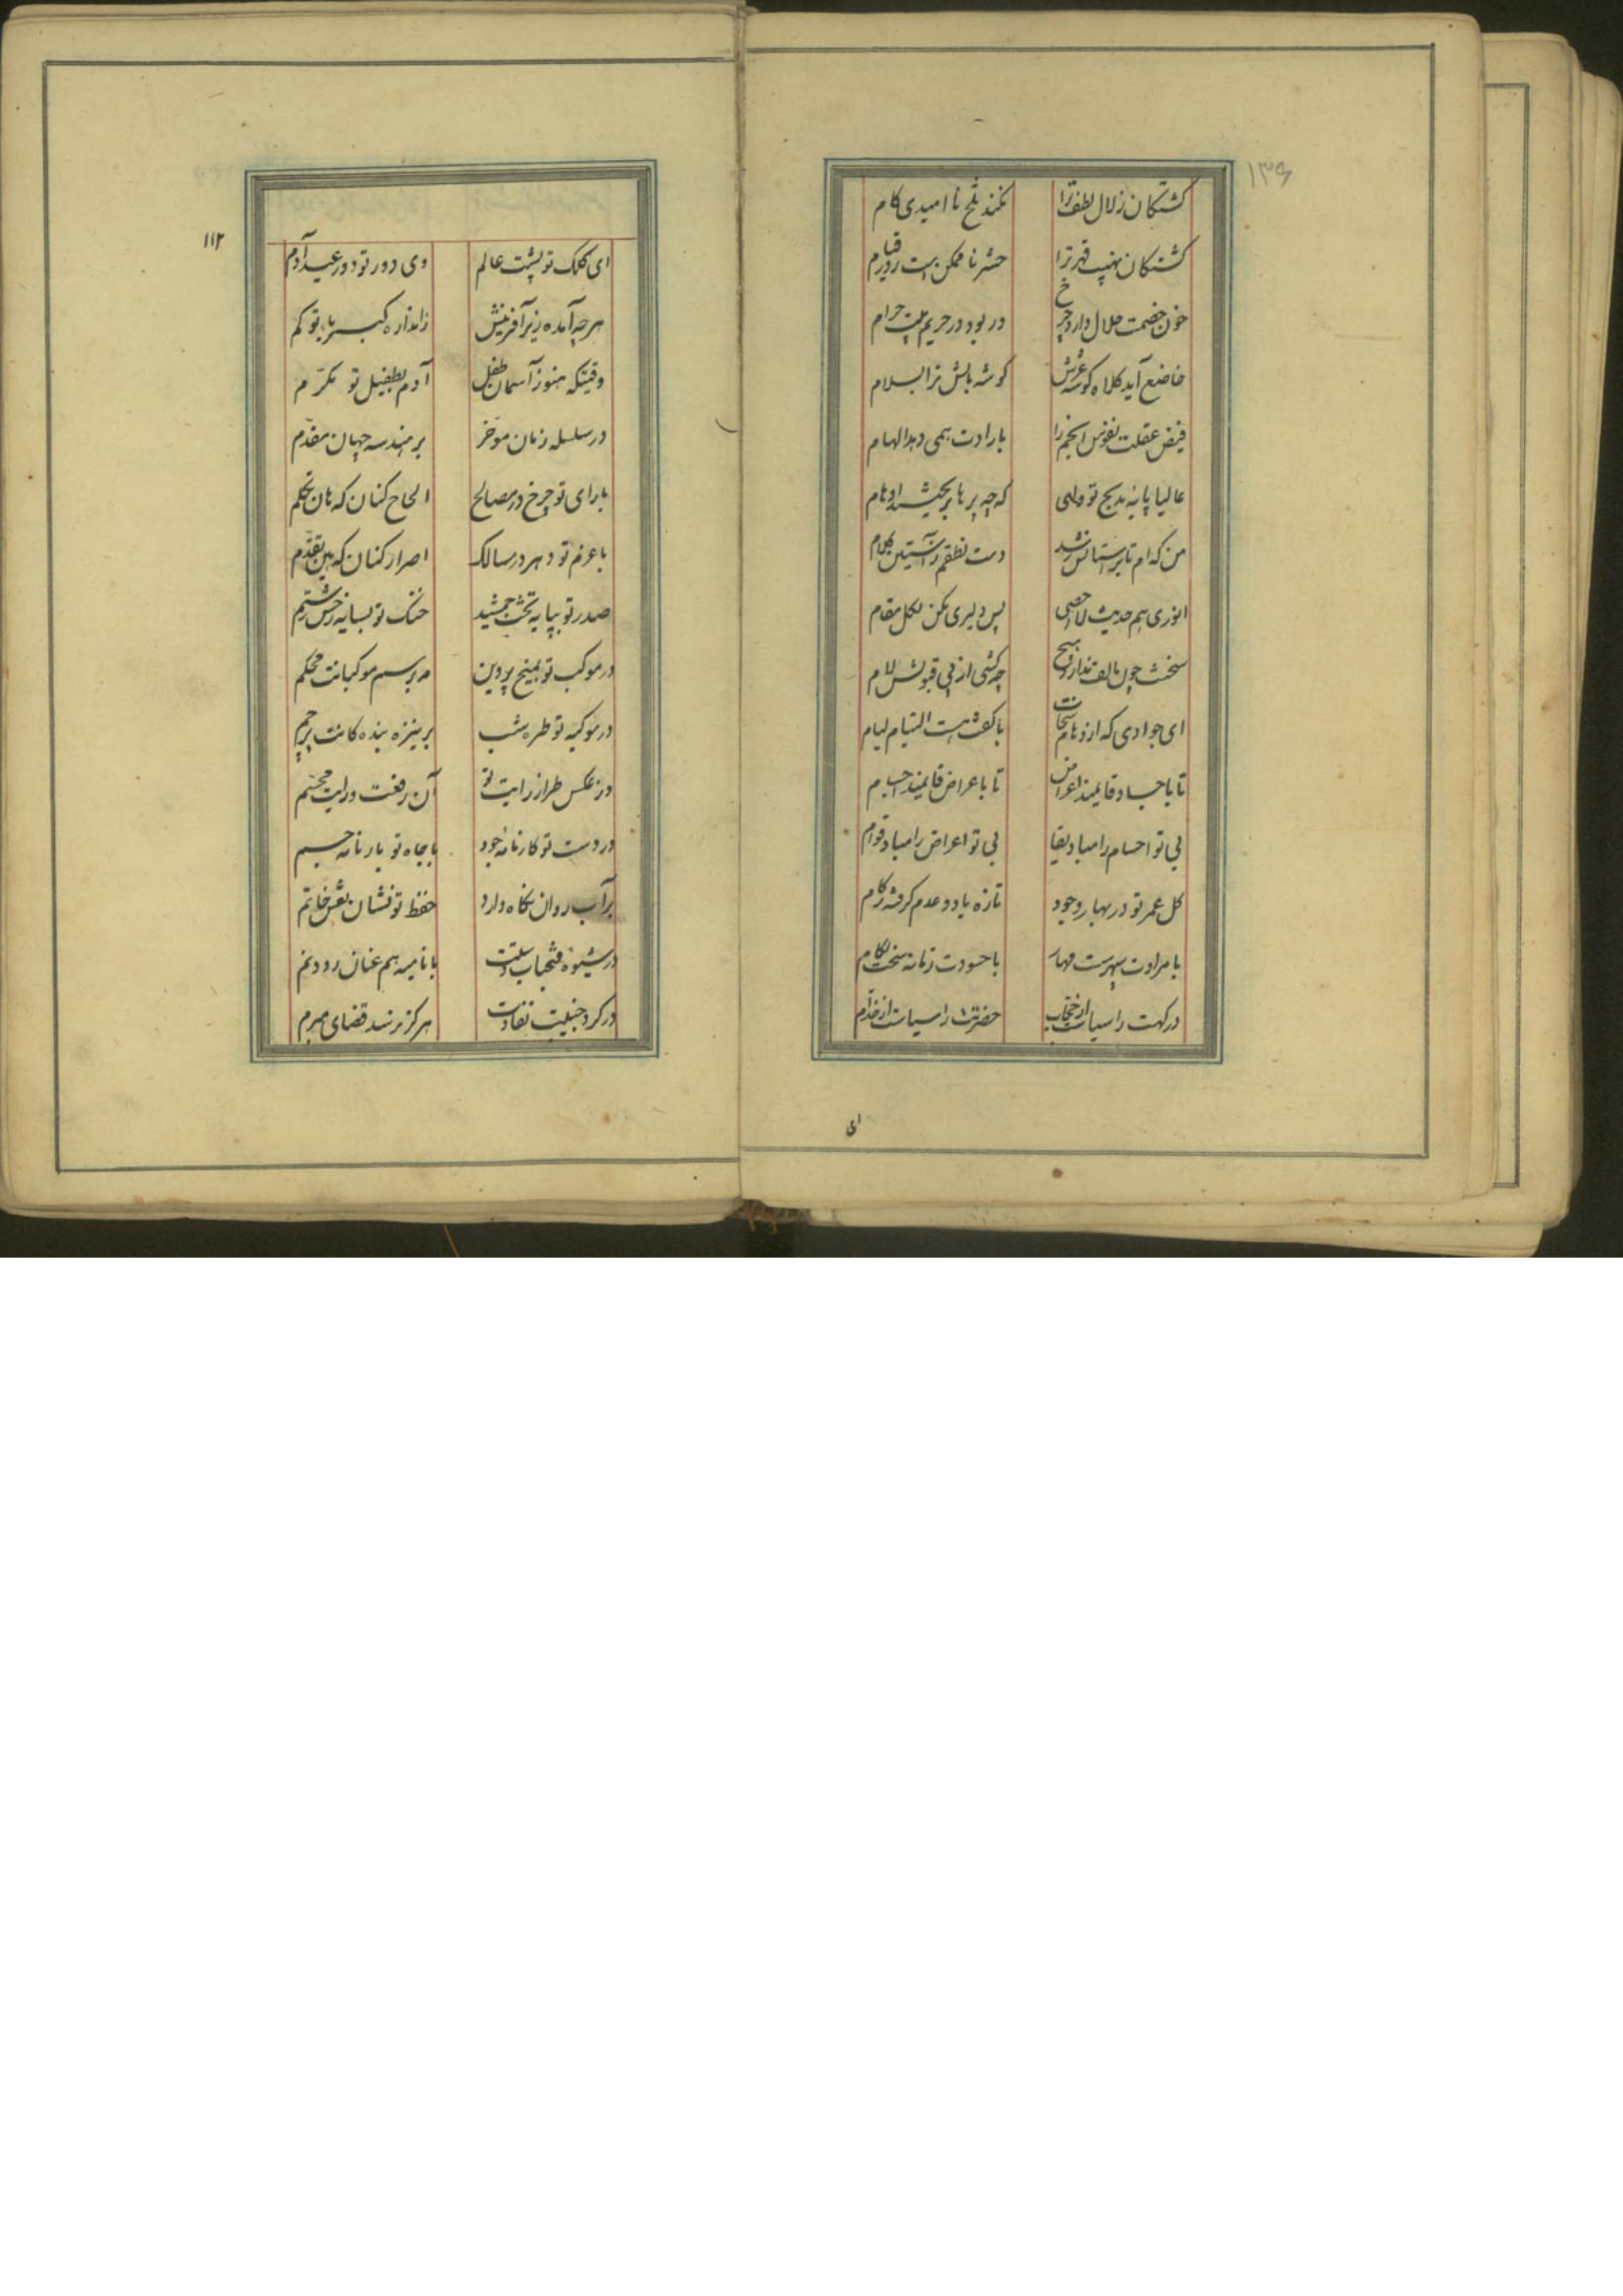 ۱۳۶
کشتکان زلال لطف ترا نکند تلخ نا امیدی کام
کشتکان نهیب قهر ترا حشر ناممکن است روز قیام
خون خصمت حلال دارد چرخ در بود در حریم بیت حرام
خاضع آید کلاه کوشه عرش کوشه بالش ترا بسلام
فیض عقلت نفوس انجم را بارادت همی دهد الهام
عالیا پایه مدیح تو ولی که چه پرها بریخت اوهام
من که ام تا بر آستانش رسد دست نطقم ز آستین کلام
انوری هم حدیث لا احصی پس دلیری مکن لکل مقام
سخت چون با الف ندارد هیچ چه کشی از پی قبولش لام
ای جوادی که از دهات سخات با کفت هست التیام لیام
تا باجساد قایمند اعراض تا باعراض قایمند اجسام
بی تو اجسام را مباد بقا بی تو اعراض را مباد قوام
کل عمر تو در بهار وجود تازه باد و عدم گرفته زکام
با مرادت سپهر سست مهار با حسودت زمانه سخت لکام
درکهت را سیاست از حجاب حضرتت را سیاست از خدام
ای
۱۱۲
ای کلک تو پشت عالم وی دور تو دور عید آدم
هر چه آمده زیر آفرینش ز اندازه کبریا تو کم
وقتیکه هنوز آسمان طفل آدم بطفیل تو مکرّم
در سلسله زمان موخر بر هندسه جهان مقدّم
با رای تو چرخ در مصالح الحاح کنان که هان تحکم
با عزم تو دهر در مسالک اصرار کنان که هین تقدّم
صدر تو بپایه تخت جمشید خنک تو بسایه رخش رستم
در موکب تو بمیخ پروین بر سم موکبانت محکم
در موکبه تو طره شب بر نیزه بنده کانت پرچم
در عکس طراز رایت تو آن رفعت و رایت مجسم
در دست تو کارنامه جود با جاه تو بارنامه جسم
بر آب روان نکاه دارد حفظ تو نشان نقش خاتم
در شیوه فتحباب دستت با نامیه هم عنان رود نم
در کرد جنیبت نفاذت هرکز نرسد قضای مبرم